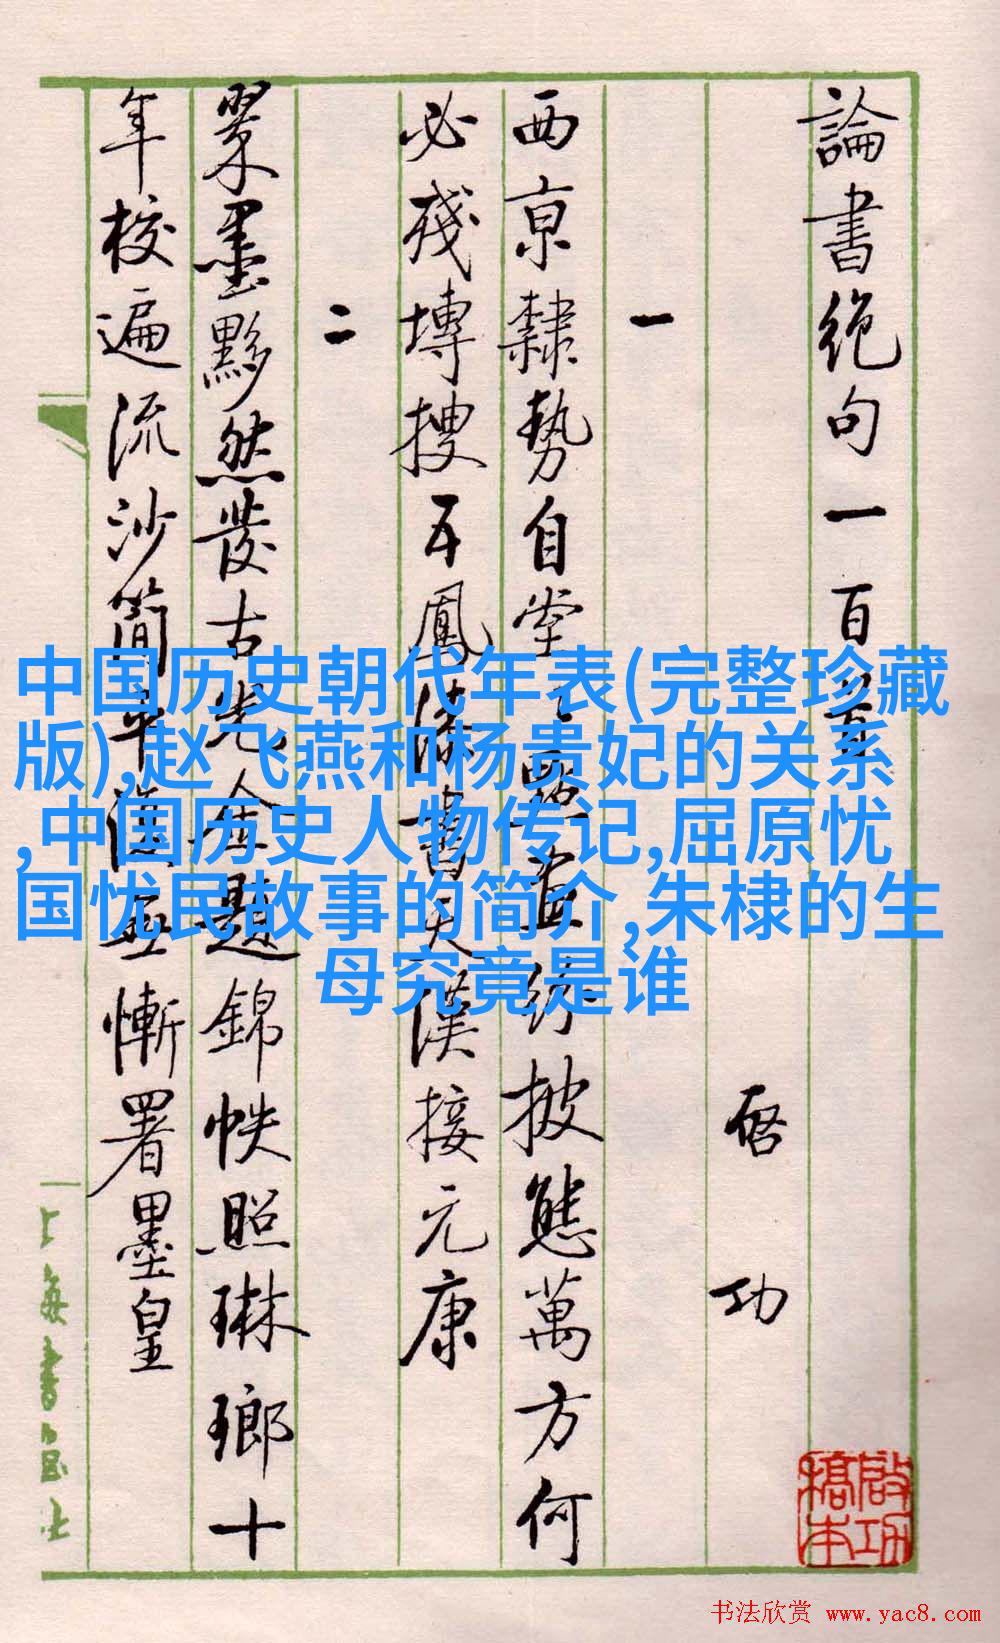 論書絶句一百首
啓功
一
西京隸勢自堂〻點畫紛披態萬方何
必殘塼搜五鳳漆書天漢接元康
二
翠墨黟然發古光金題錦帙照琳瑯十
年校遍流沙簡平復無慚署墨皇
上海書画社
啟功
稿本
中国历史朝代年表(完整珍藏
版),赵飞燕和杨贵妃的关系
,中国历史人物传记,屈原忧
国忧民故事的简介,朱棣的生
母究竟是谁
书法欣赏 www.yac8.com